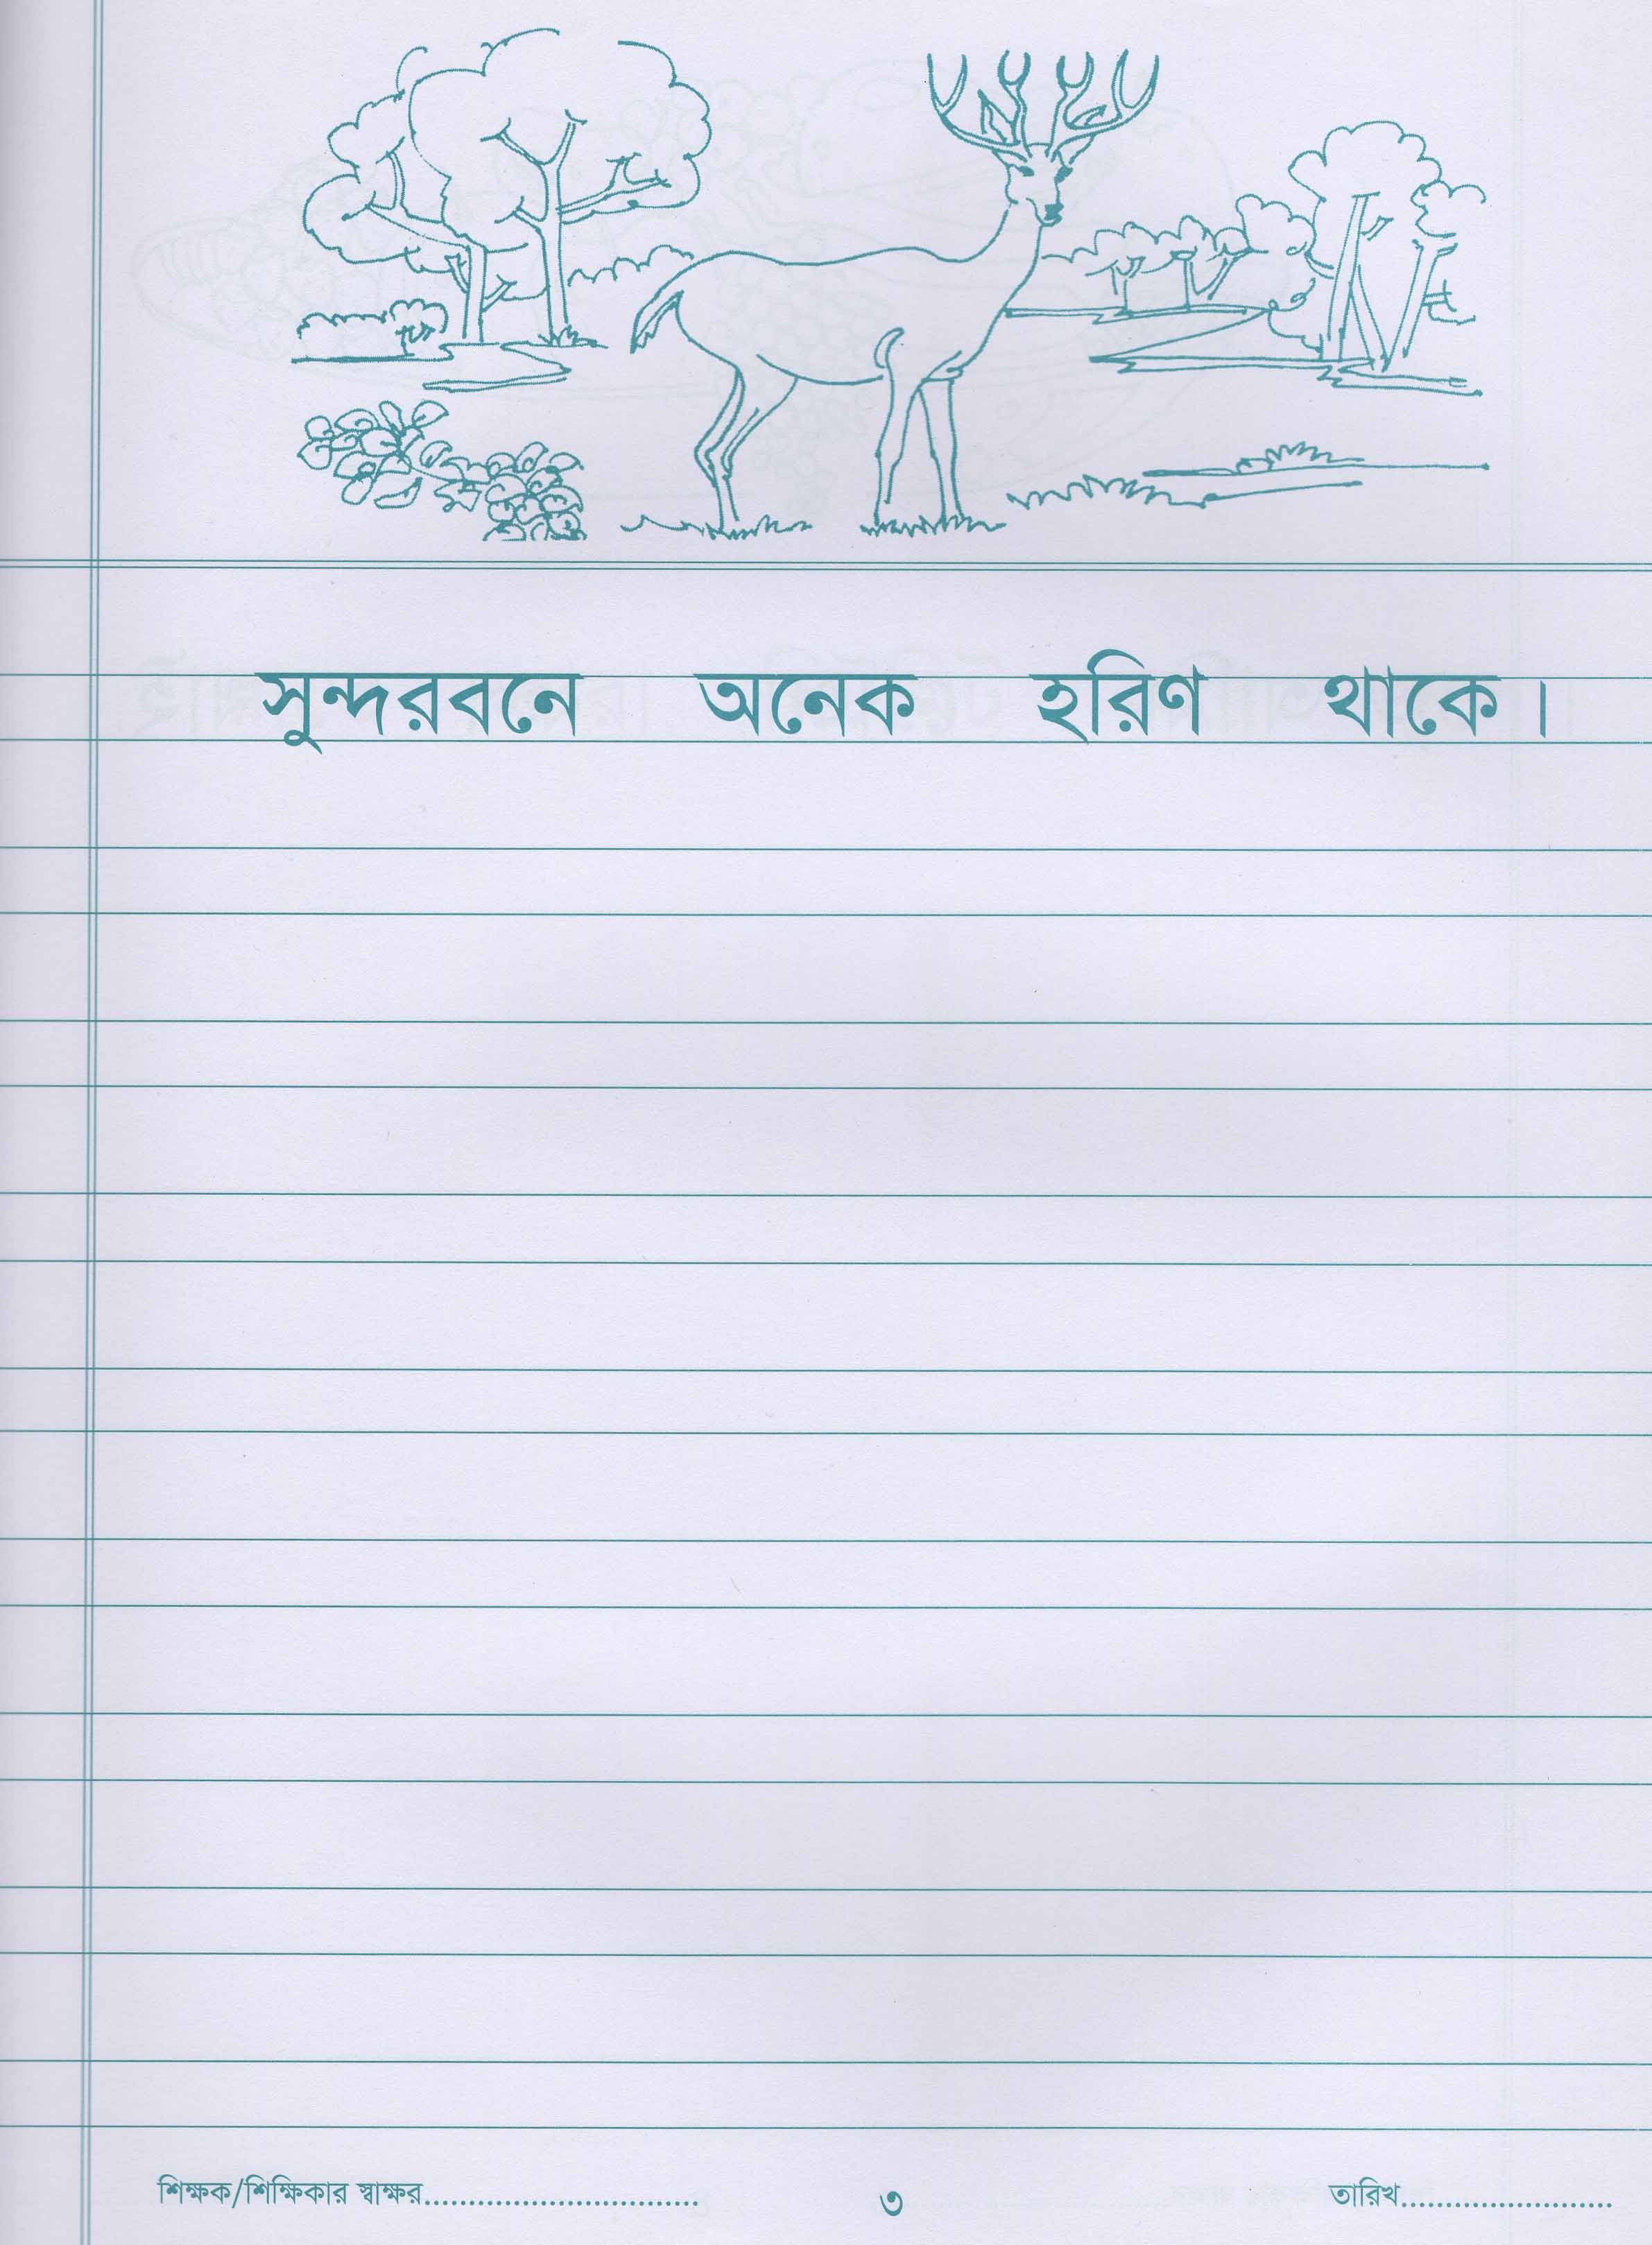 সুন্দরবনে অনেক হরিণ থাকে।
শিক্ষক/শিক্ষিকার স্বাক্ষর............................... ৩ তারিখ........................